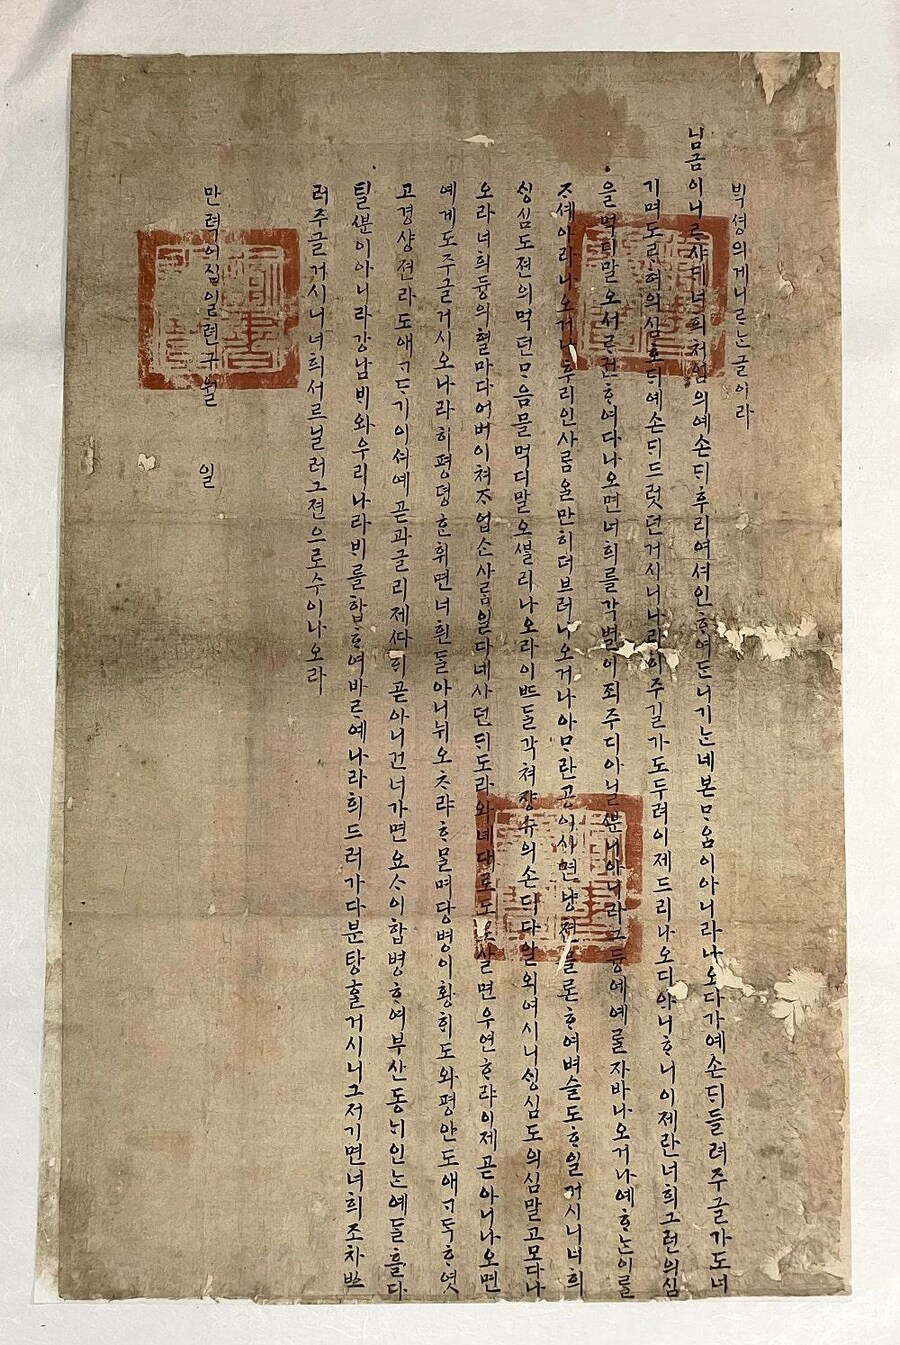 ᄇᆡᆨ셩의게니ᄅᆞᄂᆞᆫ글이라
님금이니ᄅᆞ샤ᄃᆡ너희처엄의예손ᄃᆡ후리여셔인ᄒᆞ여ᄃᆞᆫ니기ᄂᆞᆫ네본ᄆᆞᄋᆞᆷ이아니라나오다가예손ᄃᆡ들려주글가도너
기며도ᄅᆞ혀의심호ᄃᆡ예손ᄃᆡ드럿던거시니나라히주길가도두려이제드리나오디아니ᄒᆞ니이제란너희그런의심
을먹디말오서ᄅᆞ권ᄒᆞ여다나오면너희를각별이죄주디아닐ᄲᅮᆫ니아니라그듕에예를자바나오거나예ᄒᆞᄂᆞᆫ이를
ᄌᆞ셰아라나오거나후리인사ᄅᆞᆷ을만히더브러나오거나아ᄆᆞ란공이시면냥쳔을론ᄒᆞ여벼슬도ᄒᆞ일거시니너희
ᄉᆡᆼ심도젼의먹던ᄆᆞᄋᆞᆷ믈먹디말오ᄲᆞᆯ리나오라이ᄠᅳ들각쳐쟝슈의손ᄃᆡ다알외여시니ᄉᆡᆼ심도의심말고모다나
오라너희듕의혈마다어버이쳐ᄌᆞ업ᄉᆞᆫ사ᄅᆞᆷ일다네사던ᄃᆡ도라와녜대로도로살면우연ᄒᆞ랴이제곧아니나오면
예게도주글거시오나라히평뎡ᄒᆞᆫ휘면너흰들아니뉘오ᄎᆞ랴ᄒᆞᄆᆞᆯ며당병이황ᄒᆡ도와평안도애ᄀᆞᄃᆞᆨᄒᆞ엿
고경샹젼라도애ᄀᆞᄃᆞ기이셔예곧과글리제ᄯᅡᄒᆡ곧아니건너가면요ᄉᆞ이합병ᄒᆞ여부산동ᄂᆡ인ᄂᆞᆫ예ᄃᆞᆯ흘다
틸ᄲᅮᆫ이아니라강남ᄇᆡ와우리나라ᄇᆡ를합ᄒᆞ여바ᄅᆞ예나라희드러가다분탕ᄒᆞᆯ거시니그저기면너희조차ᄡᅳ
러주글거시니너희서ᄅᆞ닐러그젼으로수이나오라
만력이십일년구월 일